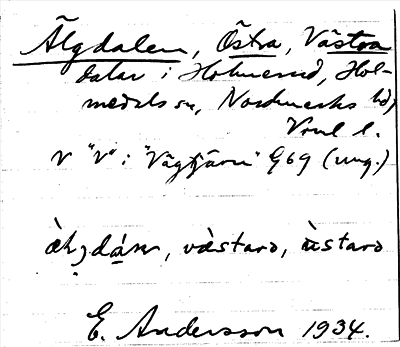 Älgdalen, Östra, Västra
dalar i Holmerud, Hol-
medals sn, Nordmarks hd,
Vrml l.
V "V" i "Vägtjärn" G69 (ung.)
västarə, ùstarə
E. Andersson 1934.